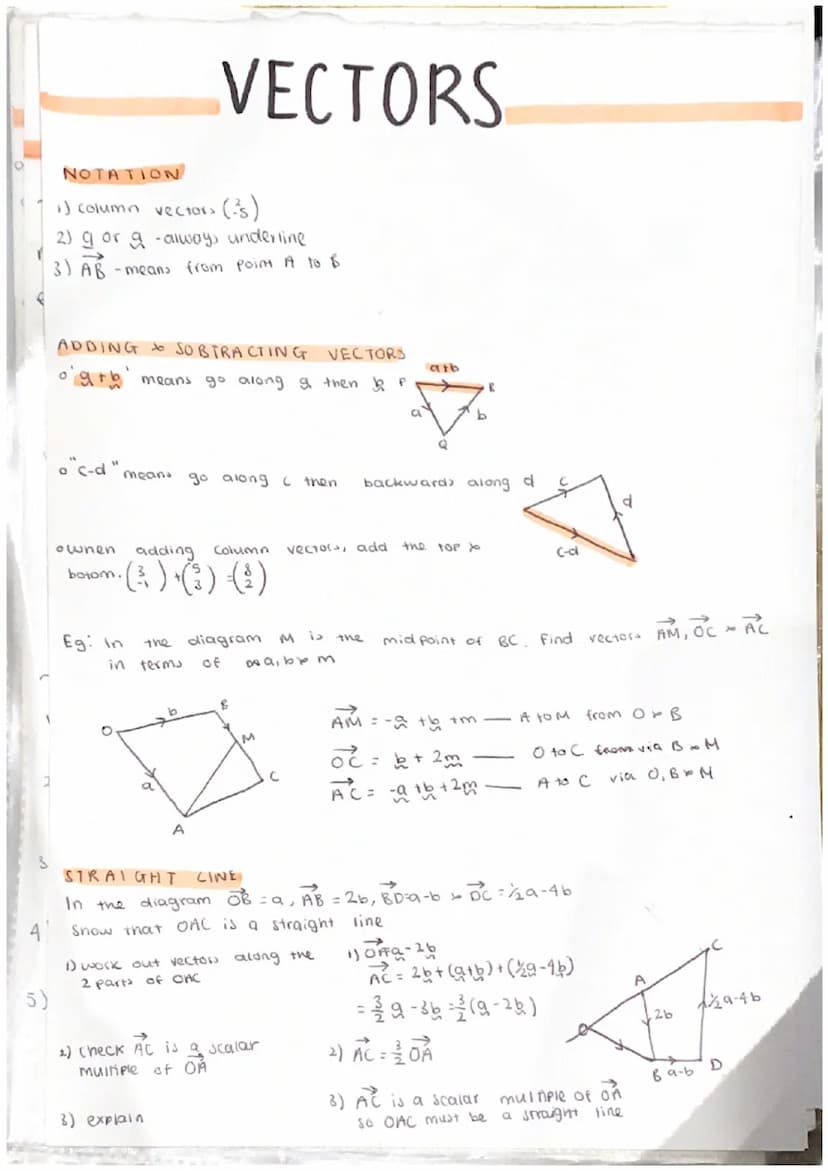 VECTORS
NOTATION
1) column vectors (2 -5)
2) a or a - always underline
3) AB - means from point A to B
ADDING & SOBTRACTING VECTORS
o 'a+b' means go along a then b
a+b
P
R
a
b
Q
o "c-d" means go along c then backwards along d
c
d
c-d
o when adding column vectors, add the top &
botom. (3 -1) + (5 3) = (8 2)
Eg: In the diagram M is the midpoint of BC. Find vectors AM, OC & AC
in terms of a, b & m
O
b
B
M
a
C
A
AM = -a + b + m — A to M from O & B
OC = b + 2m — O to C via B & M
AC = -a + b + 2m — A to C via O, B & M
STRAIGHT LINE
In the diagram OB = a, AB = 2b, BD = a-b & DC = ½a-4b
Show that OAC is a straight line
1) work out vectors along the
2 parts of OAC
1) OA=a-2b
AC = 2b + (a+b) + (½a-4b)
= 3/2 a - 3b = 3/2 (a-2b)
2) check AC is a scalar
multiple of OA
2) AC = 3/2 OA
3) explain
3) AC is a scalar multiple of OA
so OAC must be a straight line
C
A
½a-4b
2b
O
B
a-b
D
3
4
5)